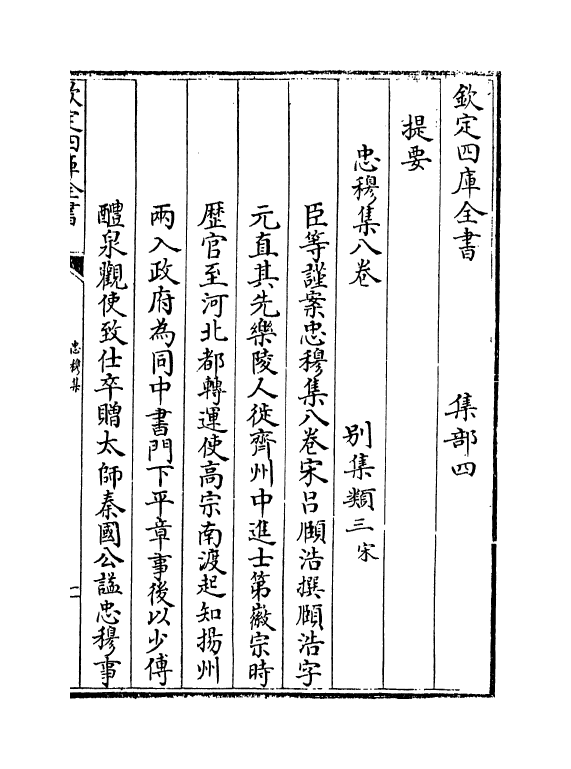 欽定四庫全書　集部四
提要
忠穆集八卷　別集類三宋
臣等謹案忠穆集八卷宋吕頤浩撰頤浩字
元直其先樂陵人徙齊州中進士第徽宗時
歴官至河北都轉運使高宗南渡起知揚州
兩入政府為同中書門下平章事後以少傅
醴泉觀使致仕卒贈太師秦國公謚忠穆事
欽定四庫全書
忠穆集
一